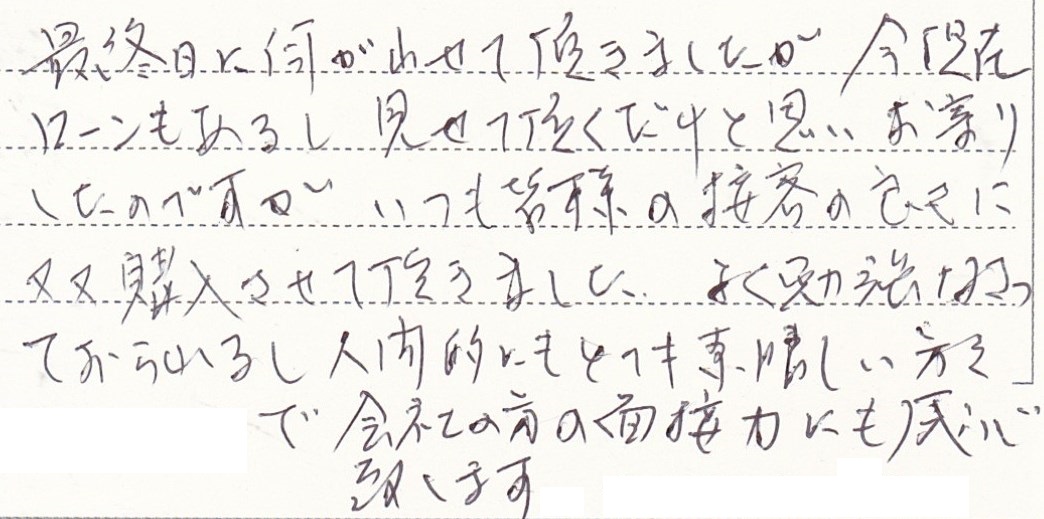 最終日に伺がわせて頂きましたが 今現在
ローンもあるし 見せて頂くだけと思い お寄り
したのですが いつも皆様の接客の良さに
又又購入させて頂きました。よく勉強なさっ
ておられるし 人間的にもとても素晴しい方々
で 会社の方の面接力にも感心
致します